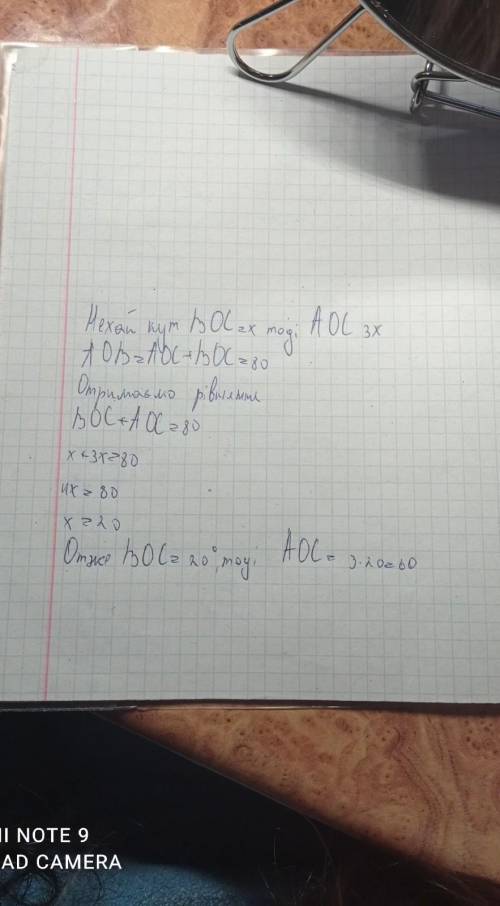 Нехай кут BOC=x тоді AOC 3x
AOB=AOC+BOC=80
Отримаємо рівняння
BOC+AOC=80
x+3x=80
4x=80
x=20
Отже BOC=20°, тоді AOC=3·20=60
NOTE 9
AD CAMERA